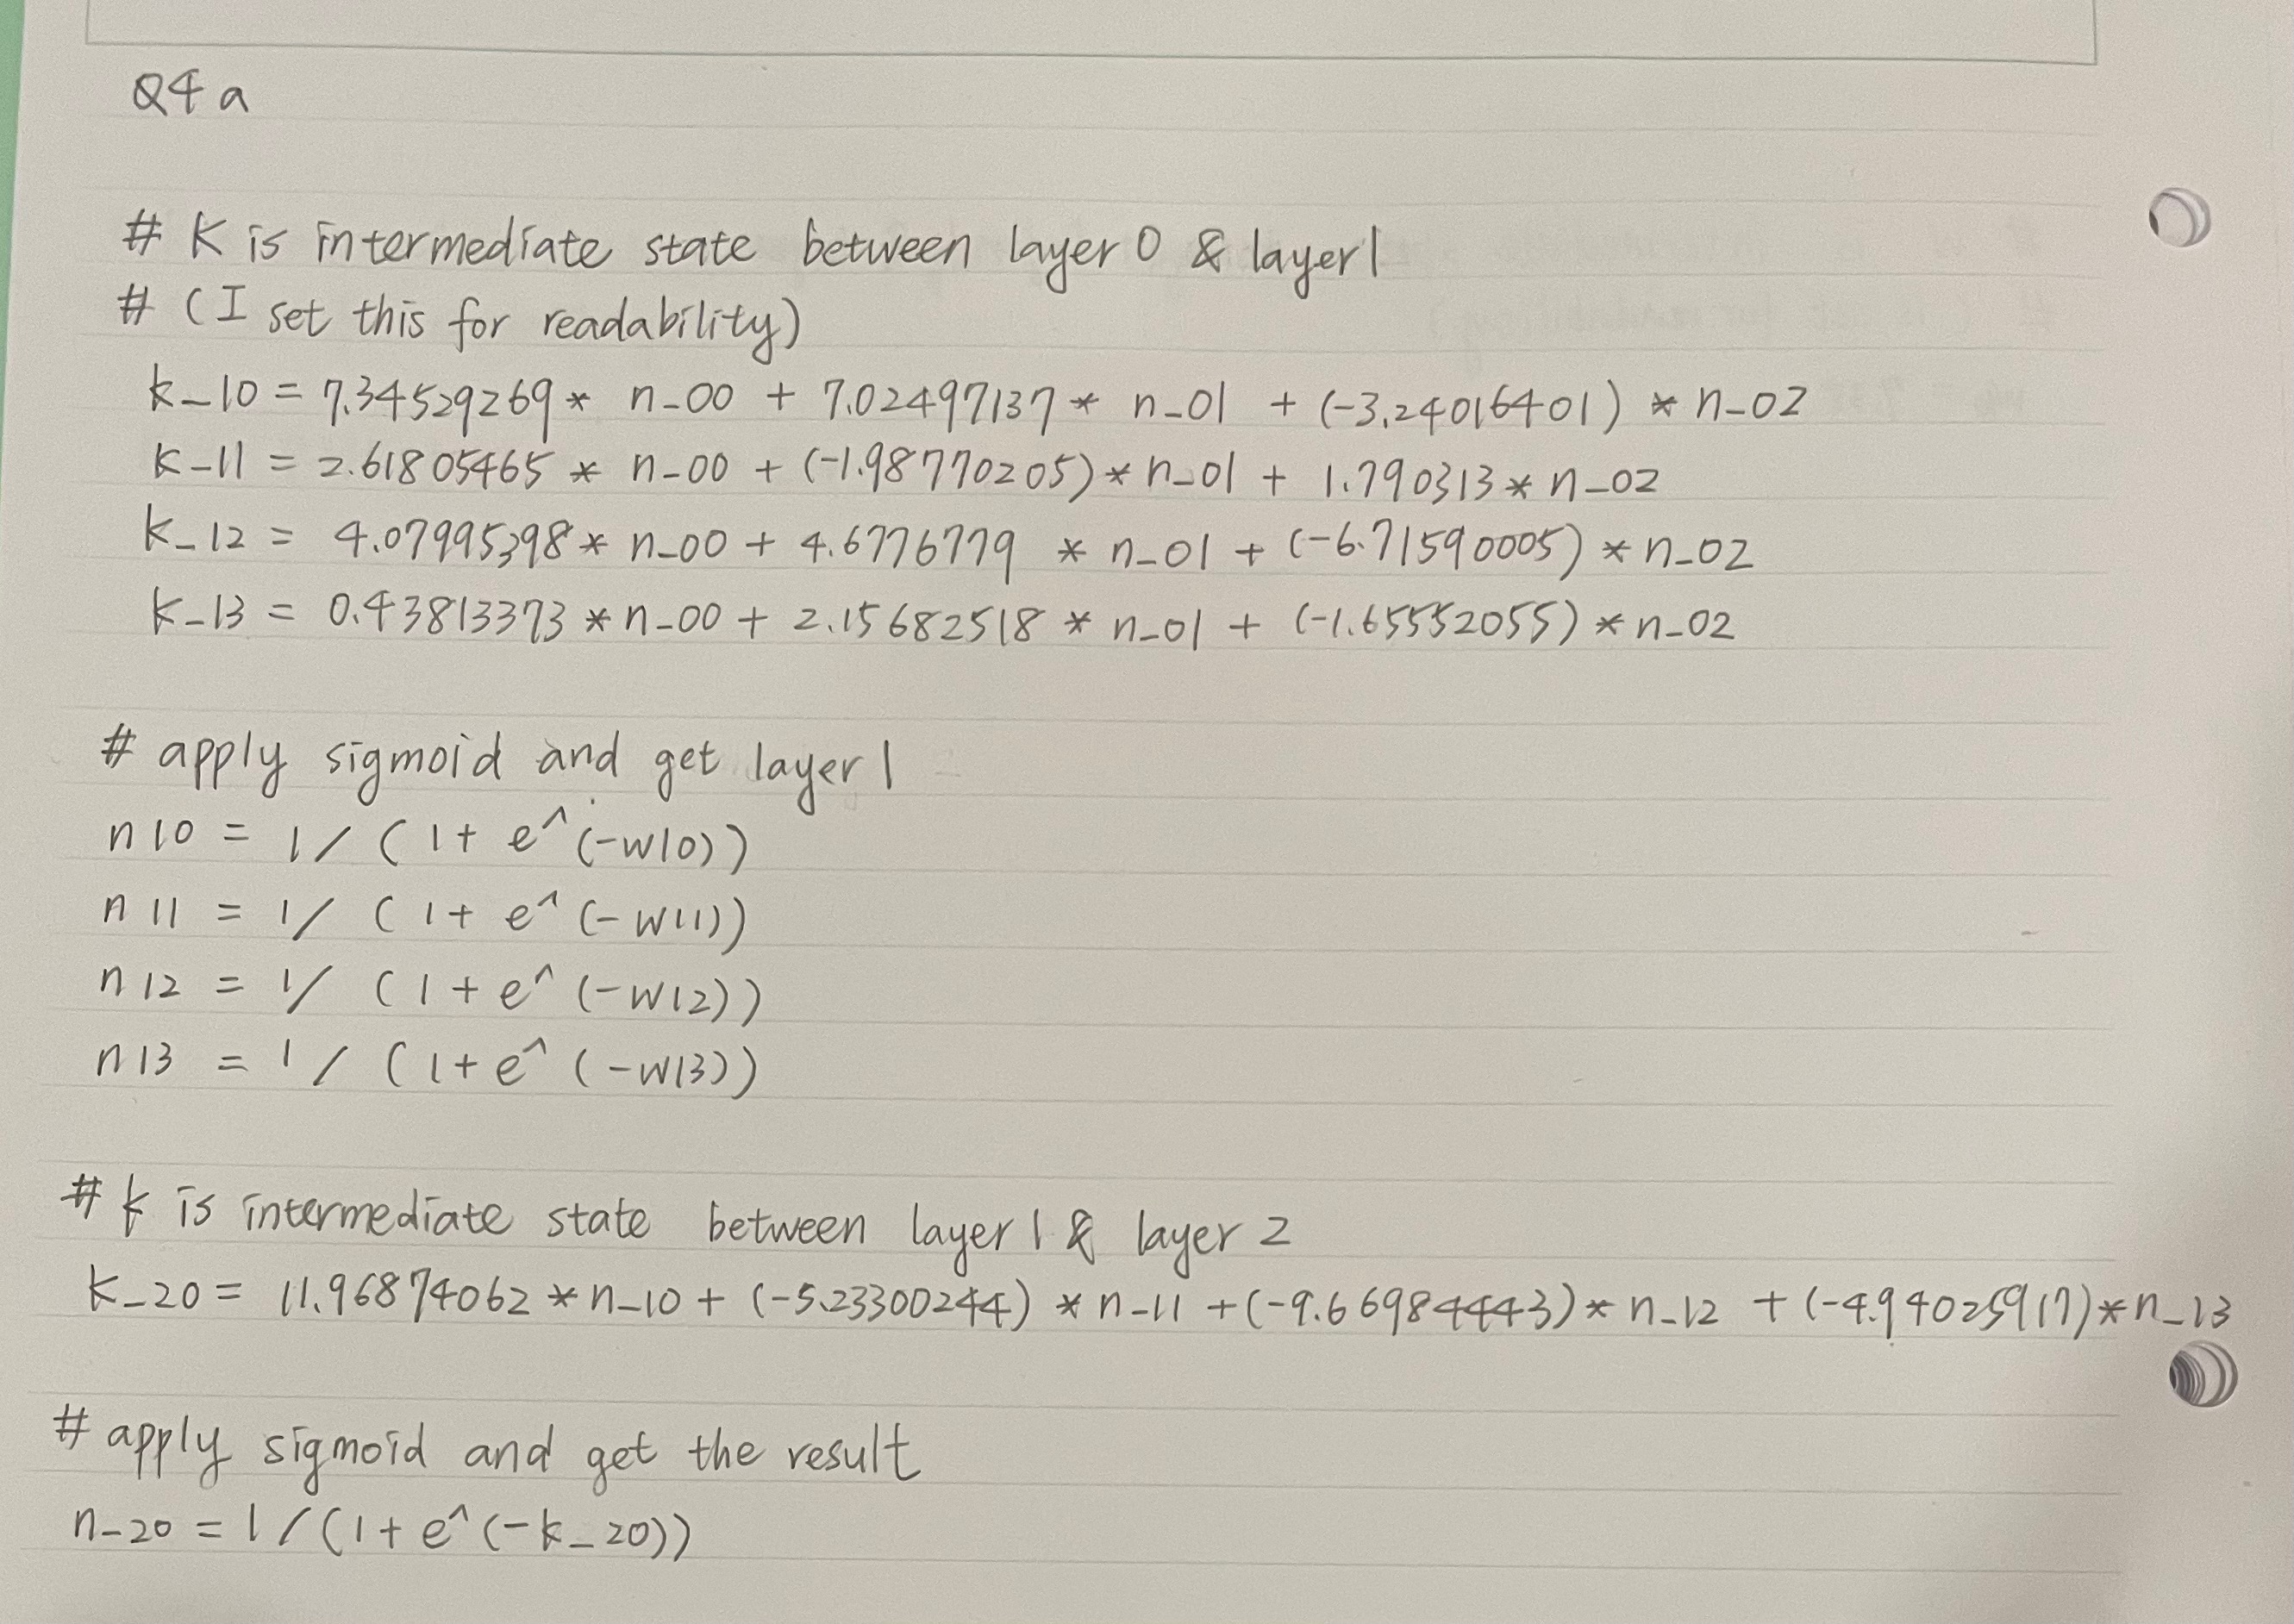 Q4 a
# K is intermediate state between layer 0 & layer 1
# (I set this for readability)
k_10 = 7.34529269 * n_00 + 7.02497137 * n_01 + (-3.24016401) * n_02
k_11 = 2.61805465 * n_00 + (-1.98770205) * n_01 + 1.790313 * n_02
k_12 = 4.07995398 * n_00 + 4.6776779 * n_01 + (-6.71590005) * n_02
k_13 = 0.43813373 * n_00 + 2.15682518 * n_01 + (-1.65552055) * n_02
# apply sigmoid and get layer 1
n10 = 1 / (1 + e^(-w10))
n11 = 1 / (1 + e^(-w11))
n12 = 1 / (1 + e^(-w12))
n13 = 1 / (1 + e^(-w13))
# k is intermediate state between layer 1 & layer 2
k_20 = 11.96874062 * n_10 + (-5.23300244) * n_11 + (-9.66984443) * n_12 + (-4.94025917) * n_13
# apply sigmoid and get the result
n_20 = 1 / (1 + e^(-k_20))